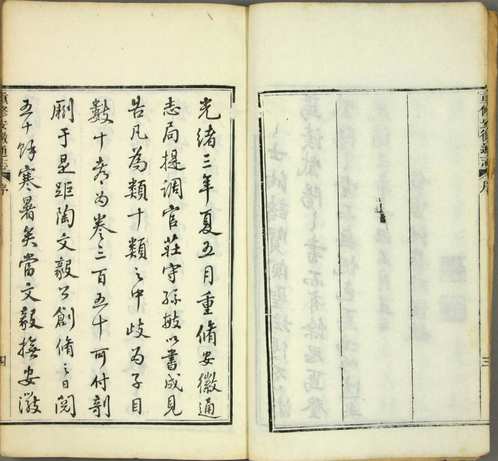 重修安徽通志 序
三
光緒三年夏五月重脩安徽通
志局提調官莊守孫敏以書成見
告凡為類十類之中歧為子目
數十者為卷三百五十可付剞
劂于是距陶文毅公創脩之日閱
五十餘寒暑矣當文毅撫安徽
重修安徽通志 序
四